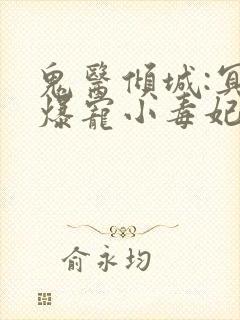 鬼醫傾城:冥
爆寵小毒妃
俞永均